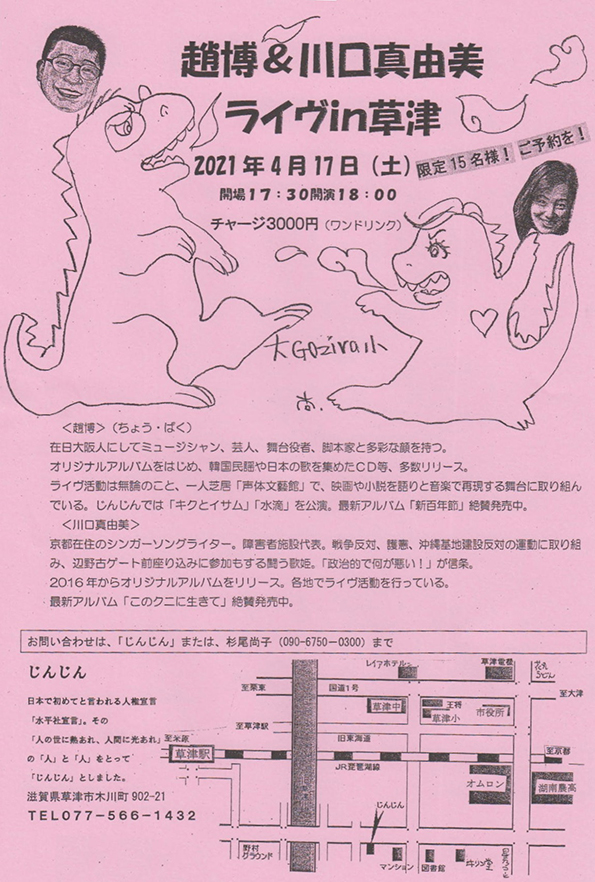 趙博＆川口真由美
ライヴin草津
2021年4月17日（土）
限定15名様！ ご予約を！
開場17：30開演18：00
チャージ3000円（ワンドリンク）
大Gozira小
尚.
＜趙博＞（ちょう・ぱく）
在日大阪人にしてミュージシャン、芸人、舞台役者、脚本家と多彩な顔を持つ。
オリジナルアルバムをはじめ、韓国民謡や日本の歌を集めたＣＤ等、多数リリース。
ライヴ活動は無論のこと、一人芝居「声体文藝館」で、映画や小説を語りと音楽で再現する舞台に取り組ん
でいる。じんじんでは「キクとイサム」「水滴」を公演。最新アルバム「新百年節」絶賛発売中。
＜川口真由美＞
京都在住のシンガーソングライター。障害者施設代表。戦争反対、護憲、沖縄基地建設反対の運動に取り組
み、辺野古ゲート前座り込みに参加もする闘う歌姫。「政治的で何が悪い！」が信条。
2016年からオリジナルアルバムをリリース。各地でライヴ活動を行っている。
最新アルバム「このクニに生きて」絶賛発売中。
お問い合わせは、「じんじん」または、杉尾尚子（090-6750－0300）まで
じんじん
日本で初めてと言われる人権宣言
「水平社宣言」。その
「人の世に熱あれ、人間に光あれ」
の「人」と「人」をとって
「じんじん」としました。
滋賀県草津市木川町 902-21
ＴＥＬ077－566－1432
レイアホテル
草津電機
至栗東
国道1号
至大津
草津中
王将
草津小
市役所
至草津駅
旧東海道
至米原
草津駅
JR琵琶湖線
至京都
オムロン
湖南農高
じんじん
野村
グラウンド
マンション
図書館
キリン堂